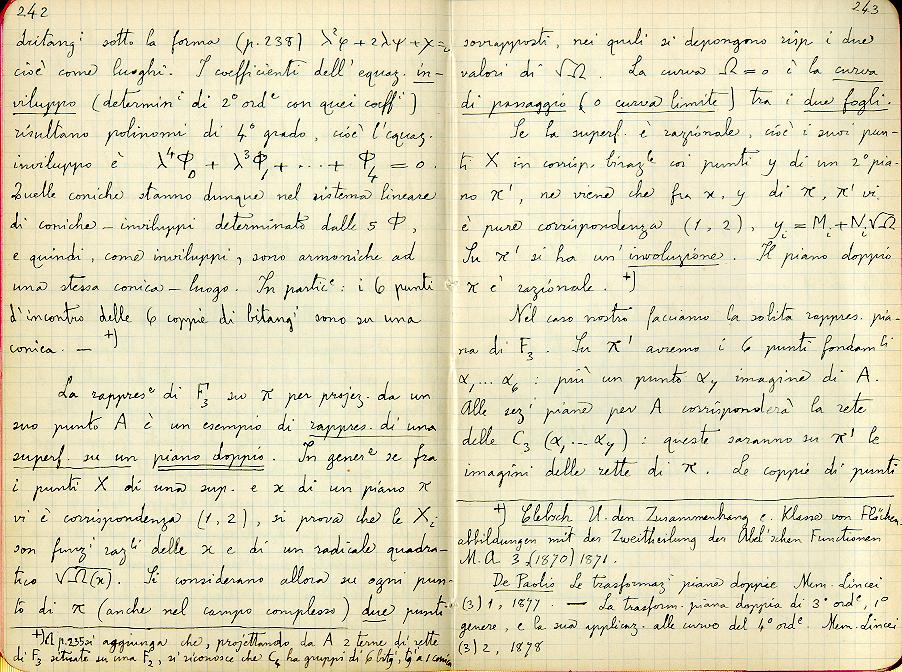 242
dritang.i sotto la forma (p. 238) λ²φ + 2λψ + χ = 0
cioè come luoghi. I coefficienti dell'equaz. in-
viluppo (determin.i di 2° ord.e con quei coeff.i)
risultano polinomi di 4° grado, cioè l'equaz.
inviluppo è λ⁴Φ₀ + λ³Φ₁ + ··· + Φ₄ = 0.
Quelle coniche stanno dunque nel sistema lineare
di coniche – inviluppi determinato dalle 5 Φ,
e quindi, come inviluppi, sono armoniche ad
una stessa conica – luogo. In partic.e: i 6 punti
d'incontro delle 6 coppie di bitang.i sono su una
conica. — +)
La rappres.e di F₃ su π per projez. da un
suo punto A è un esempio di rappres. di una
superf. su un piano doppio. In gener.e se fra
i punti X di una sup. e x di un piano π
vi è corrispondenza (1, 2), si prova che le Xᵢ
son funz.i raz.li delle x e di un radicale quadra-
tico √Ω(x). Si considerano allora su ogni pun-
to di π (anche nel campo complesso) due punti
+) A p. 235 si aggiunga che, projettando da A 2 terne di rette
di F₃ situate su una F₂, si riconosce che C₄ ha gruppi di 6 bitg.i, tg.i a 1 conica
243
sovrapposti, nei quali si depongono risp. i due
valori di √Ω. La curva Ω = 0 è la curva
di passaggio (o curva limite) tra i due fogli.
Se la superf. è razionale, cioè i suoi pun-
ti X in corrisp. biraz.le coi punti y di un 2° pia-
no π', ne viene che fra x, y di π, π' vi
è pure corrispondenza (1, 2), yᵢ = Mᵢ + Nᵢ√Ω
Su π' si ha un'involuzione. Il piano doppio
π è razionale. +)
Nel caso nostro facciamo la solita rappres. pia-
na di F₃. Su π' avremo i 6 punti fondam.li
α₁ ... α₆ : più un punto α₇ imagine di A.
Alle sez.i piane per A corrisponderà la rete
delle C₃ (α₁ ... α₇) : queste saranno su π' le
imagini delle rette di π. Le coppie di punti
+) Clebsch U. den Zusammenhang e. Klasse von Flächen-
abbildungen mit der Zweitheilung der Abel'schen Functionen
M. A. 3 (1870) 1871.
De Paolis Le trasformaz.i piane doppie Mem. Lincei
(3) 1, 1877. — La trasform. piana doppia di 3° ord.e, 1°
genere, e la sua applicaz. alle curve del 4° ord.e. Mem. Lincei
(3) 2, 1878